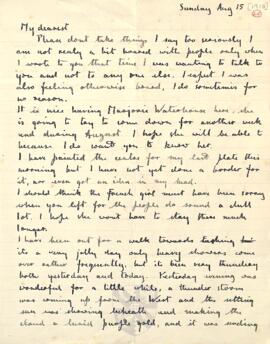 Sunday Aug 15 [1910]
My dearest
Please dont take things I say too seriously. I
am not really a bit bored with people only when
I wrote to you that time I was wanting to talk to
you and not to any one else. I expect I was
also feeling otherwise bored, I do sometimes for
no reason.
It is nice having Marjorie Waterhouse here, she
is going to try to come down for another week
end during August. I hope she will be able to
because I do want you to know her.
I have painted the centre for my last plate this
morning but I have not yet done a border for
it, nor even got an idea in my head.
I should think the french girl must have been sorry
when you left for the people do sound a dull
lot. I hope she wont have to stay there much
longer.
I have been out for a walk towards
its a very jolly day only heavy showers come
over rather frequently, but its been very thundery
both yesterday and today. Yesterday evening was
wonderful for a little while, a thunder storm
was coming up from the West and the setting
sun was showing beneath and making the
cloud a lurid purple gold, and it was